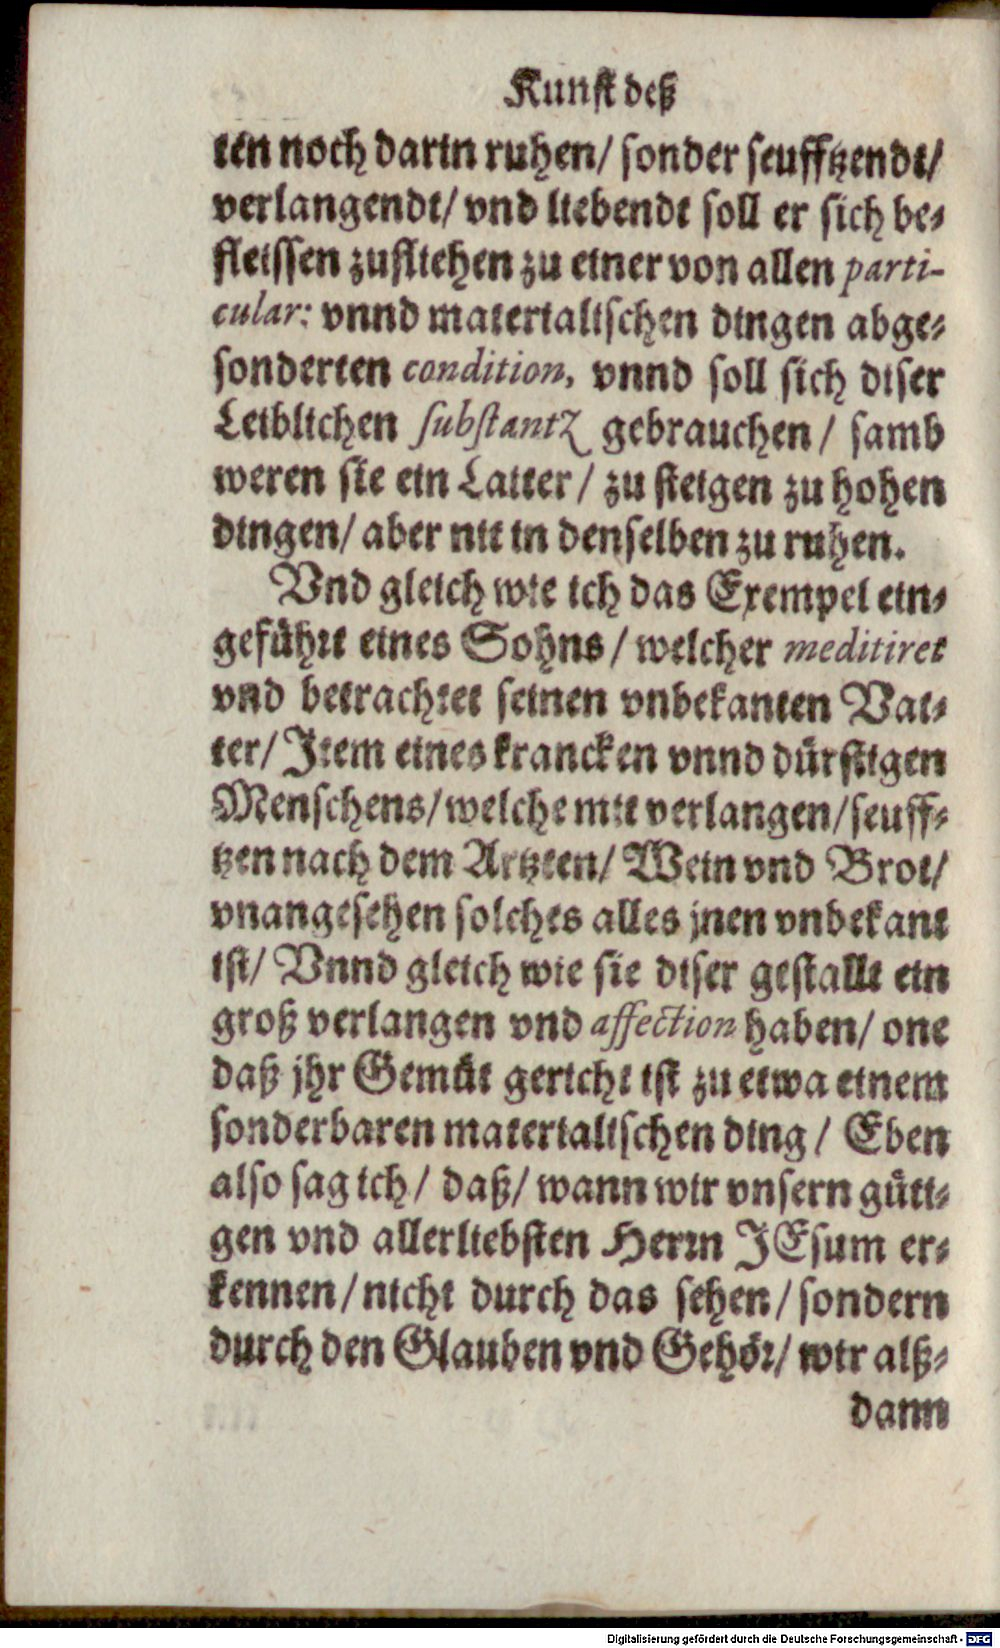 Kunſt deß
ten noch darin ruhen/ ſonder ſeufftzendt/
verlangendt/ vnd liebendt ſoll er ſich be-
fleiſſen zufliehen zu einer von allen parti-
cular: vnnd materialiſchen dingen abge-
ſonderten condition, vnnd ſoll ſich diſer
Leiblichen ſubſtantz gebrauchen/ ſamb
weren ſie ein Laiter/ zu ſteigen zu hohen
dingen/ aber nit in denſelben zu ruhen.
Vnd gleich wie ich das Exempel ein-
geführt eines Sohns/ welcher meditiret
vnd betrachtet ſeinen vnbekanten Vat-
ter/ Item eines krancken vnnd dürfftigen
Menſchens/ welche mit verlangen/ ſeuff-
tzen nach dem Artzten/ Wein vnd Brot/
vnangeſehen ſolches alles jnen vnbekant
iſt/ Vnnd gleich wie ſie diſer geſtallt ein
groß verlangen vnd affection haben/ one
daß jhr Gemüt gericht iſt zu etwa einem
ſonderbaren materialiſchen ding/ Eben
alſo ſag ich/ daß/ wann wir vnſern güti-
gen vnd allerliebſten Herrn JEſum er-
kennen/ nicht durch das ſehen/ ſondern
durch den Glauben vnd Gehör/ wir alß-
dann
Digitalisierung gefördert durch die Deutsche Forschungsgemeinschaft - DFG